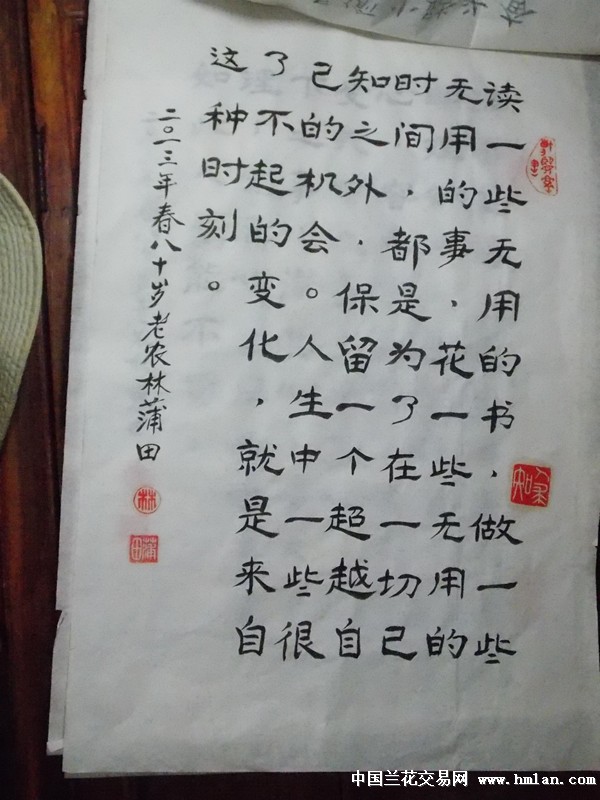 读一些无用的书，做一些
无用的事，花一些无用的
时间，都是为了在一切已
知之外，保留一个超越自
己的机会。人生中一些很
了不起的变化，就是来自
这种时刻。
二〇一三年春八十岁老农林蒲田
林
蒲田
中国兰花交易网 www.hmlan.com